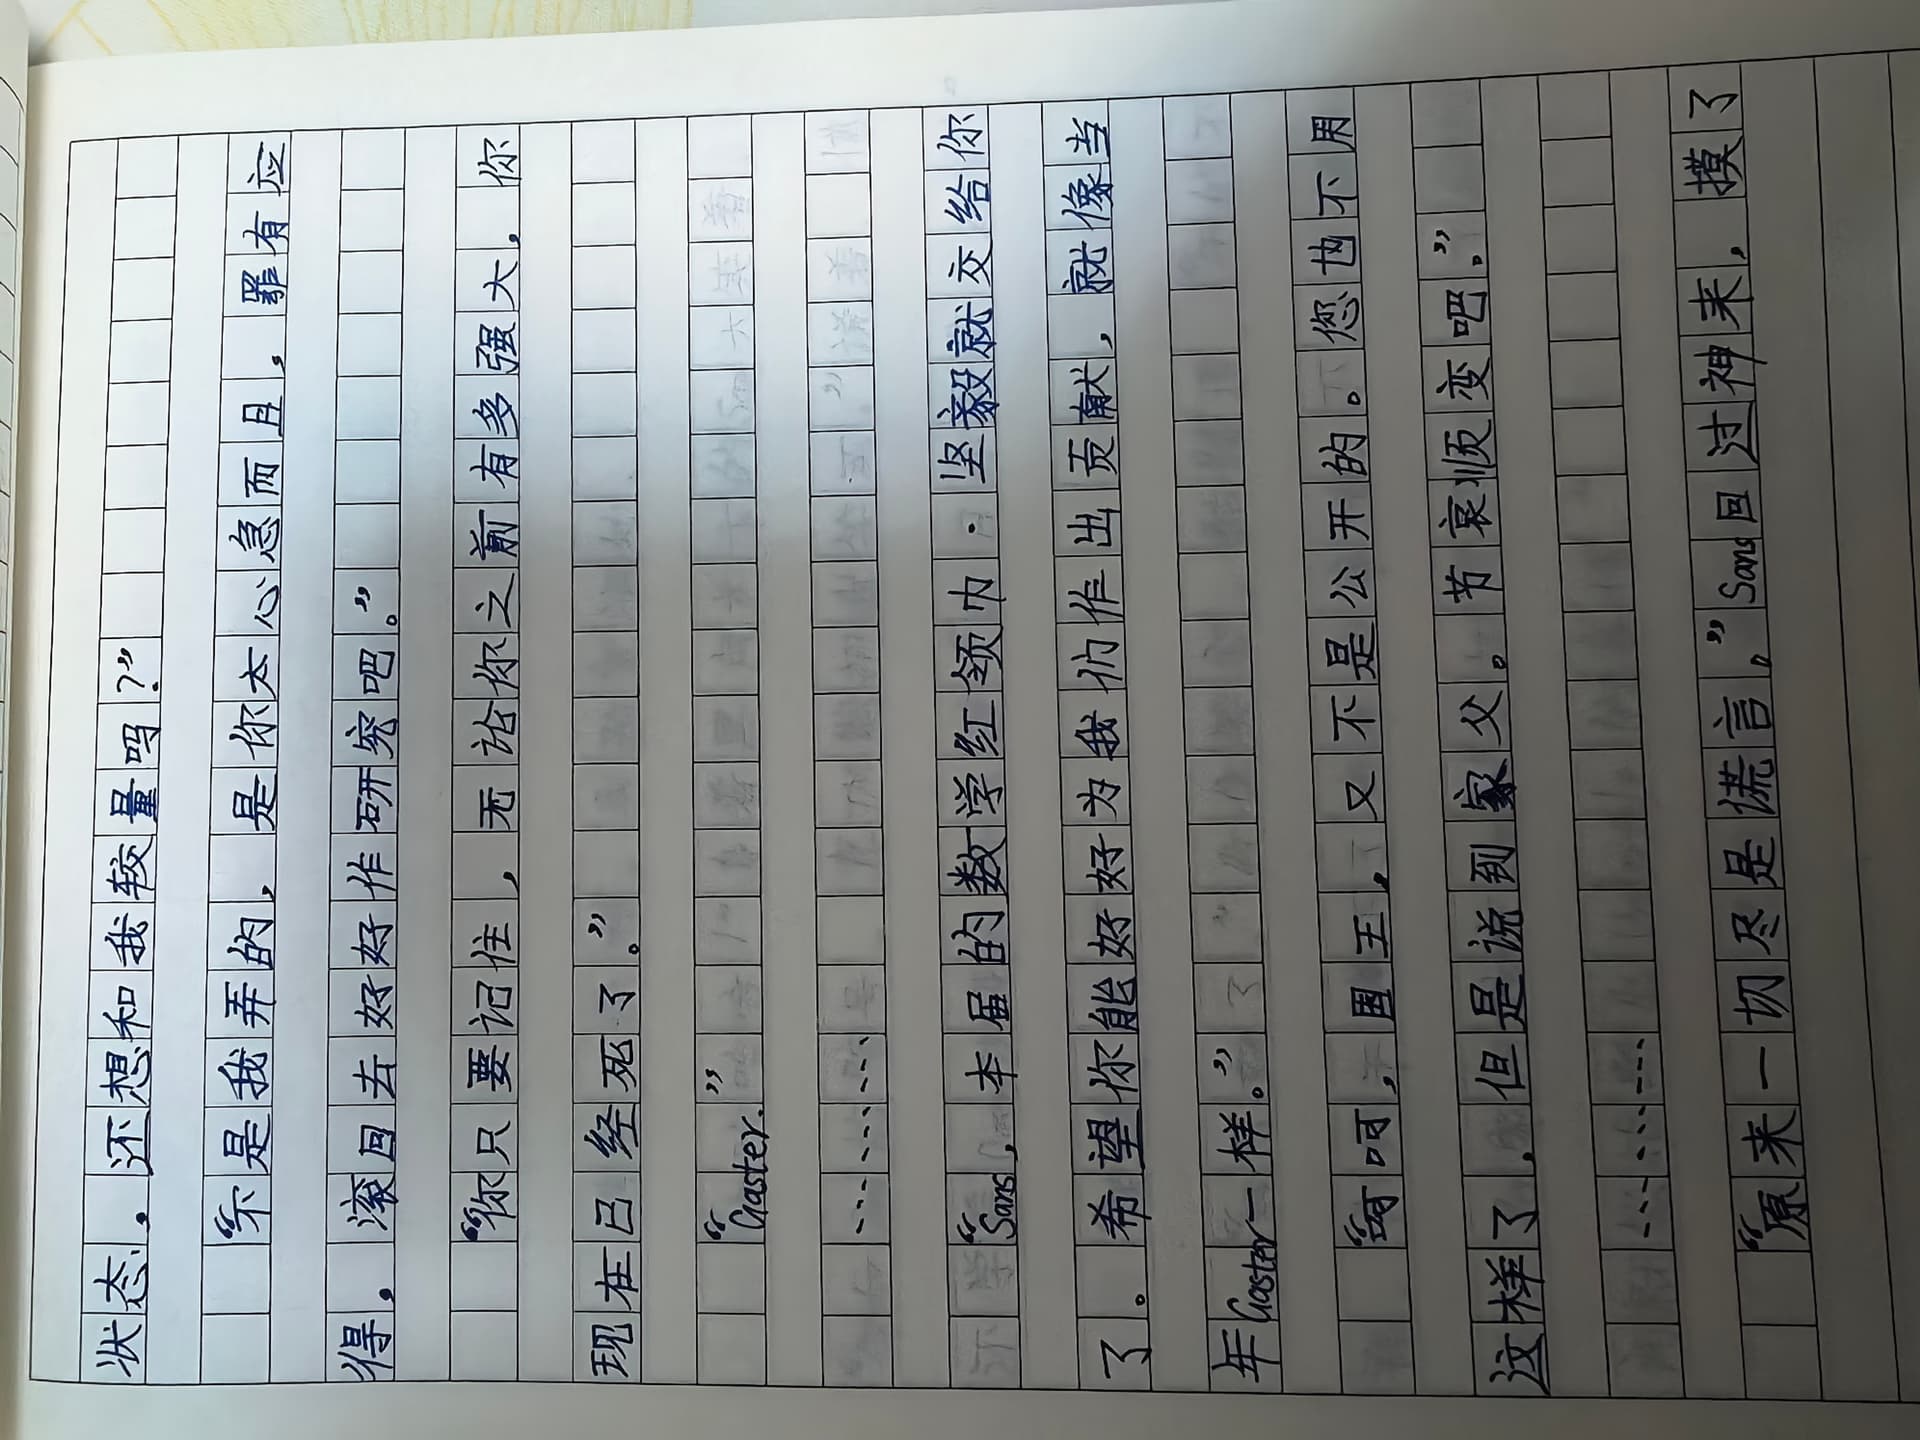 状态。还想和我较量吗？”
“不是我弄的，是你太心急而且，罪有应
得。滚回去好好作研究吧。”
“你只要记住，无论你之前有多强大，你
现在已经死了。”
“Gaster.”
…………
“Sans，本届的数学红领巾·坚毅就交给你
了。希望你能好好为我们作出贡献，就像当
年Gaster一样。”
“呵呵，国王，又不是公开的。您也不用
这样了，但是说到家父。节哀顺变吧。”
…………
“原来一切尽是谎言。”Sans回过神来，摸了